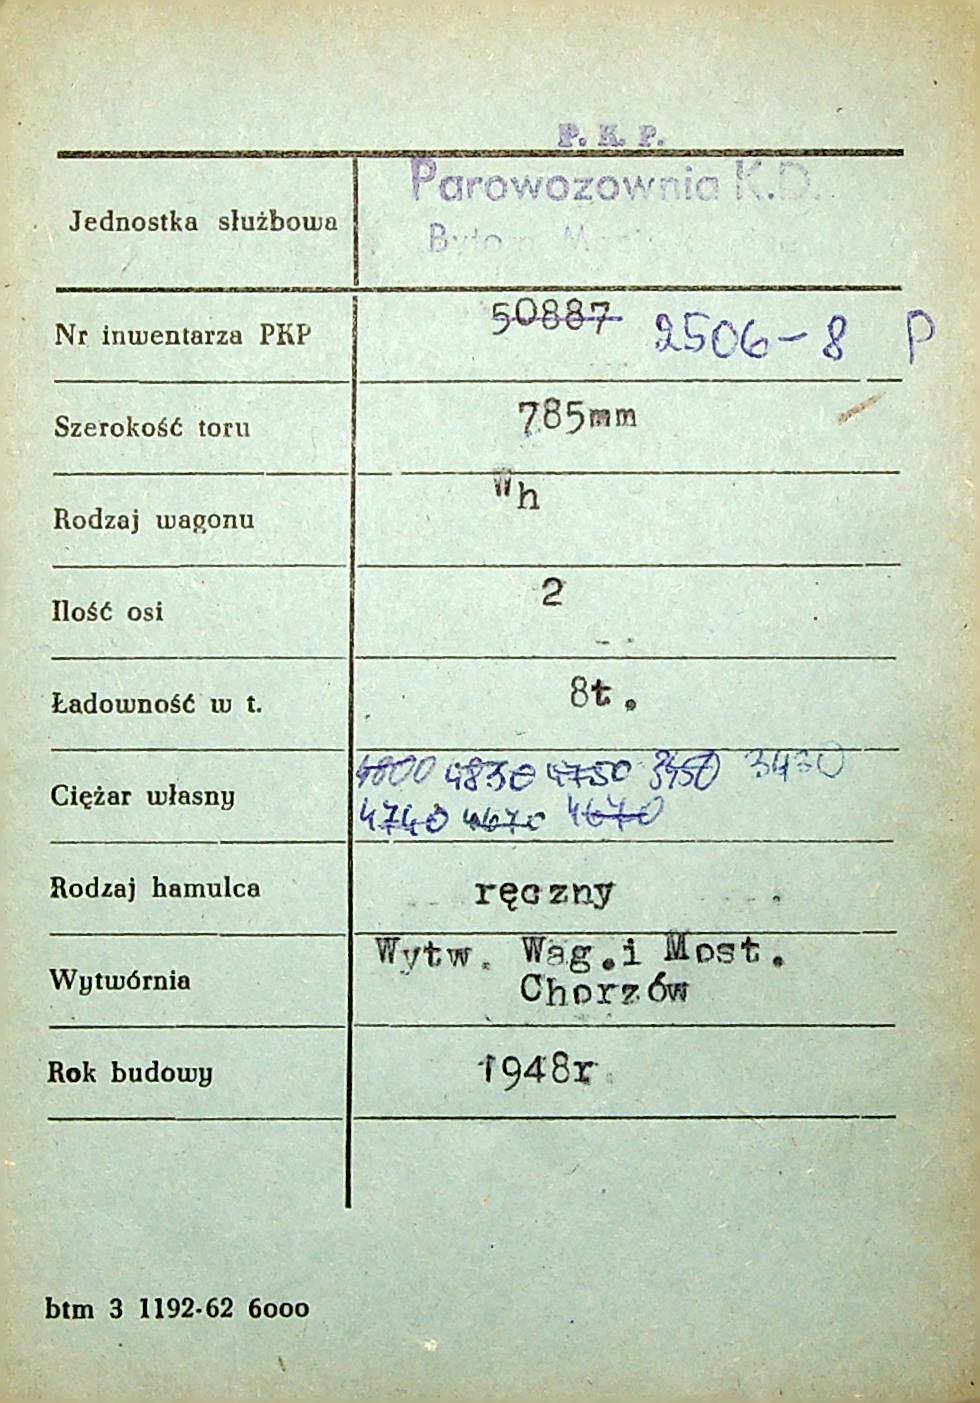 P. K. P.
Parowozownia K.D.
Jednostka służbowa
Nr inwentarza PKP 50887 2506-8 P
Szerokość toru 785mm
Rodzaj wagonu Wh
Ilość osi 2
Ładowność w t. 8t.
4800 4830 4750 3450 3430
Ciężar własny
4740 4670 4670
Rodzaj hamulca ręczny
Wytw. Wag.i Most.
Wytwórnia
Chorzów
Rok budowy 1948r
btm 3 1192-62 6000